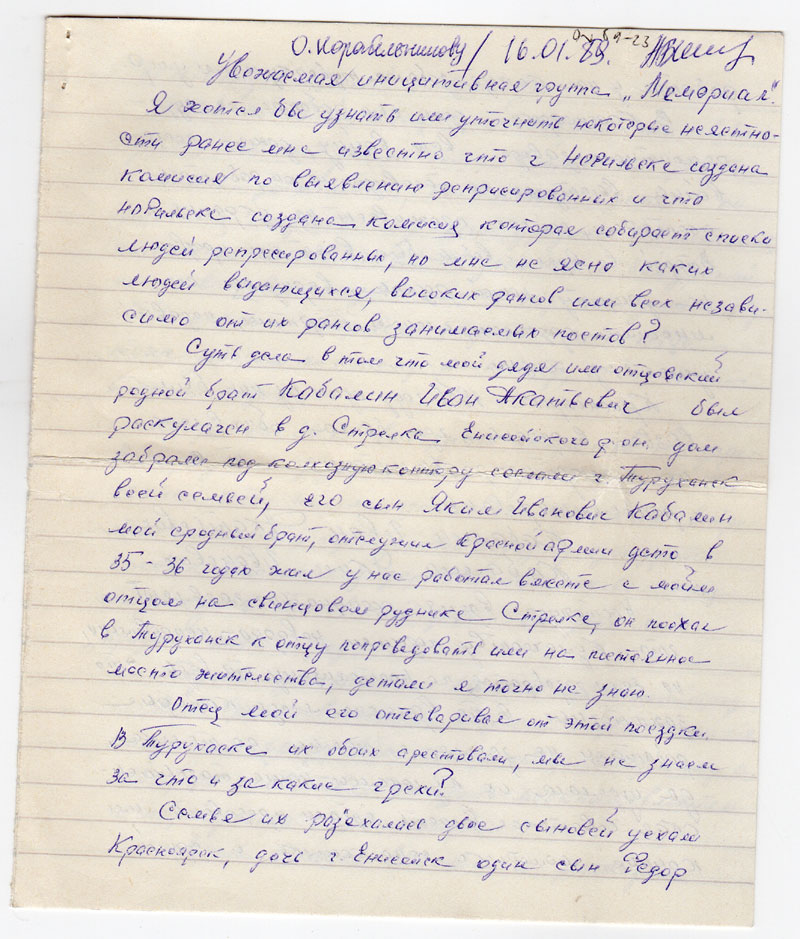 О. Коробельникову / 16.01.89.
Уважаемая инициативная группа „Мемориал“.
Я хотел бы узнать или уточнить некоторые неястно-
сти ранее мне известно что г Норильске создана
комисия по выявлению реприсированных и что
Норильске создана комисия которая собирает списки
людей репресированных, но мне не ясно каких
людей выдающихся, высоких рангов или всех незави-
симо от их рангов занимаемых постов?
Суть дела в том что мой дядя или отцовский
родной брат Кабалин Иван Акатьевич был
раскулачен в д. Стрелка Енисейского р он, дом
забрали под колхозную контору сослали г. Туруханск
всей семьей, его сын Яким Иванович Кабалин
мой сродный брат, отслужил Красной армии гдето в
35 - 36 годах жил у нас работал вместе с моим
отцом на свинцовом руднике Стрелке, он поехал
в Туруханск к отцу попроведовать или на постоянное
место жительства, детали я точно не знаю.
Отец мой его отговаривал от этой поездки.
В Турухаске их обоих арестовали, мы не знаем
за что и за какие грехи?
Семья их разехалась двое сыновей уехали
Красноярск, дочь г Енисейск один сын Федор